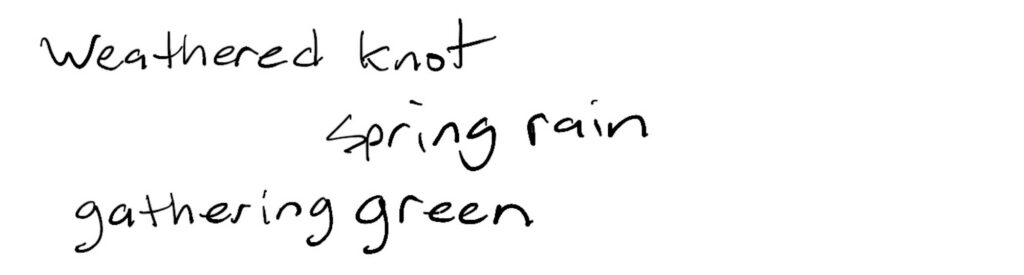 Weathered knot
spring rain
gathering green